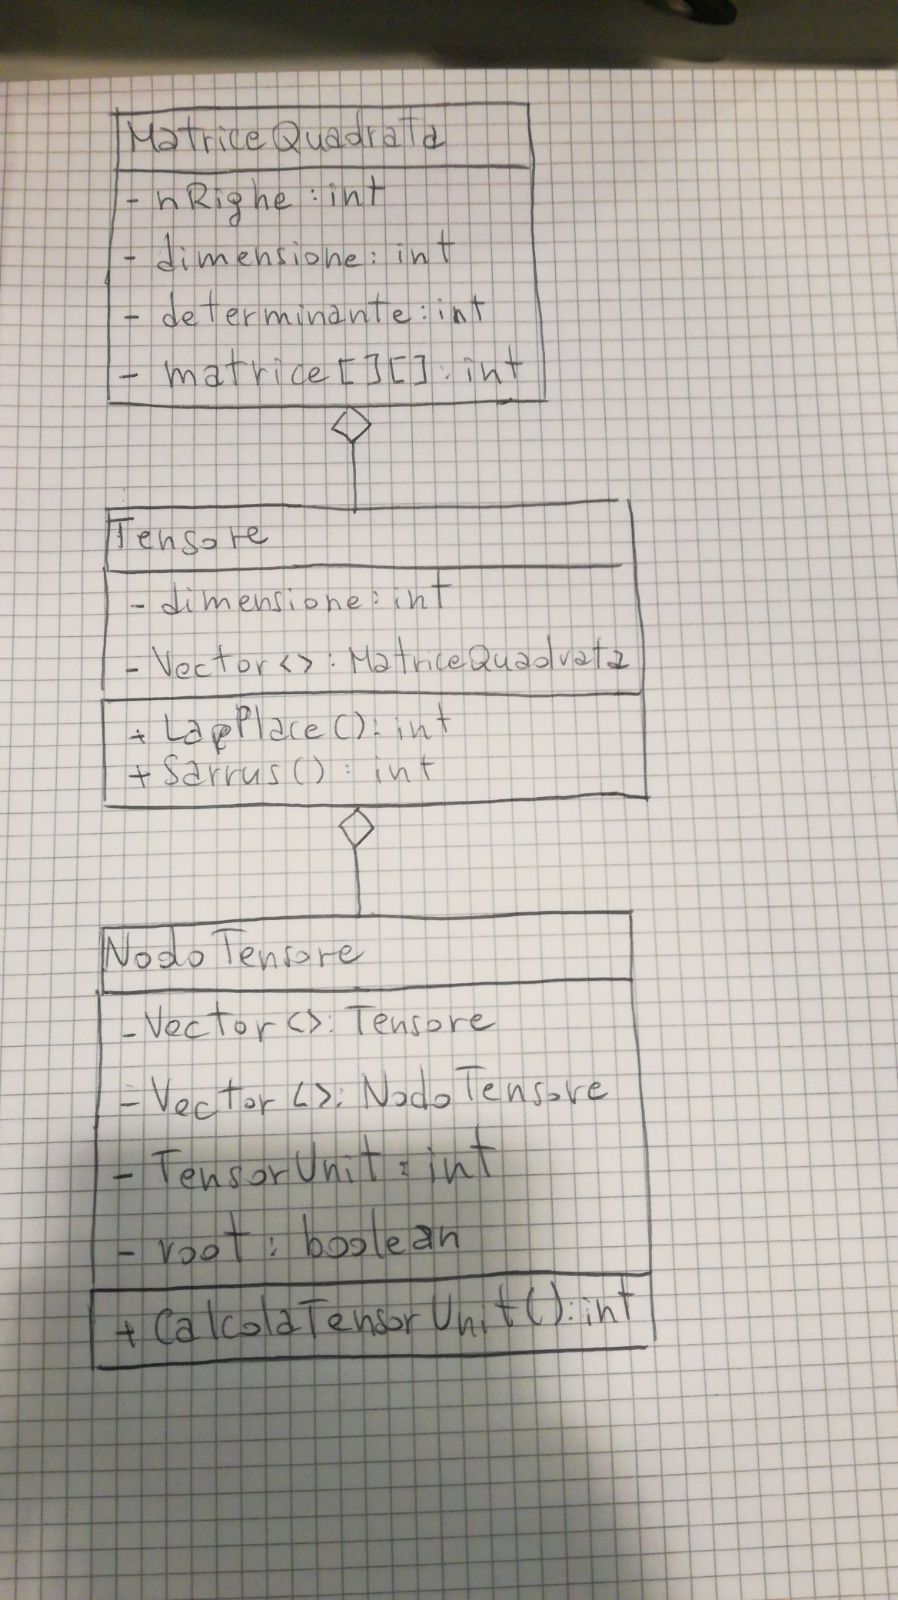 MatriceQuadrata
- nRighe : int
- dimensione : int
- determinante : int
- matrice [ ] [ ] : int
Tensore
- dimensione : int
- Vector <> : MatriceQuadrata
+ LapPlace () : int
+ Sarrus () : int
NodoTensore
- Vector <> : Tensore
- Vector <> : NodoTensore
- TensorUnit : int
- root : boolean
+ CalcolaTensorUnit () : int